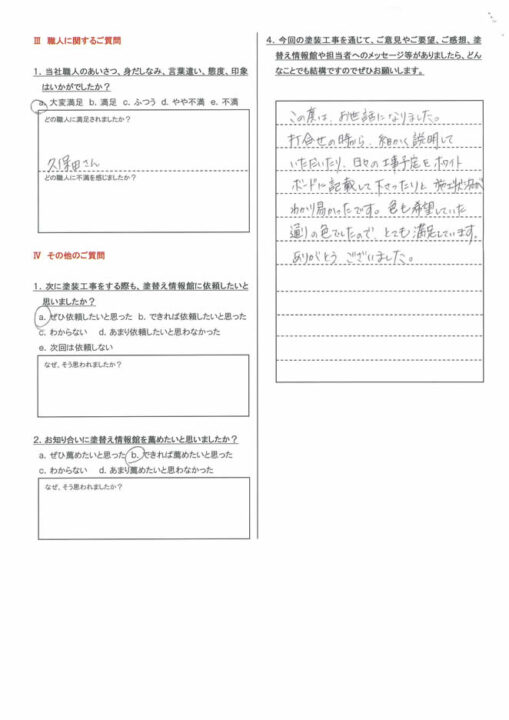 Ⅲ 職人に関するご質問
1. 当社職人のあいさつ、身だしなみ、言葉遣い、態度、印象
はいかがでしたか？
a. 大変満足 b. 満足 c. ふつう d. やや不満 e. 不満
どの職人に満足されましたか？
久保田さん
どの職人に不満を感じましたか？
Ⅳ その他のご質問
1. 次に塗装工事をする際も、塗替え情報館に依頼したいと
思いましたか？
a. ぜひ依頼したいと思った b. できれば依頼したいと思った
c. わからない d. あまり依頼したいと思わなかった
e. 次回は依頼しない
なぜ、そう思われましたか？
2. お知り合いに塗替え情報館を薦めたいと思いましたか？
a. ぜひ薦めたいと思った b. できれば薦めたいと思った
c. わからない d. あまり薦めたいと思わなかった
なぜ、そう思われましたか？
4. 今回の塗装工事を通じて、ご意見やご要望、ご感想、塗
替え情報館や担当者へのメッセージ等がありましたら、どん
なことでも結構ですのでぜひお願いします。
この度は、お世話になりました。
打合せの時から、細かく説明して
いただいたり、日々の工事予定をホワイト
ボードに記載して下さったりと 施工状況が
わかり易かったです。色も希望していた
通りの色でしたので、とても満足しています。
ありがとう ございました。